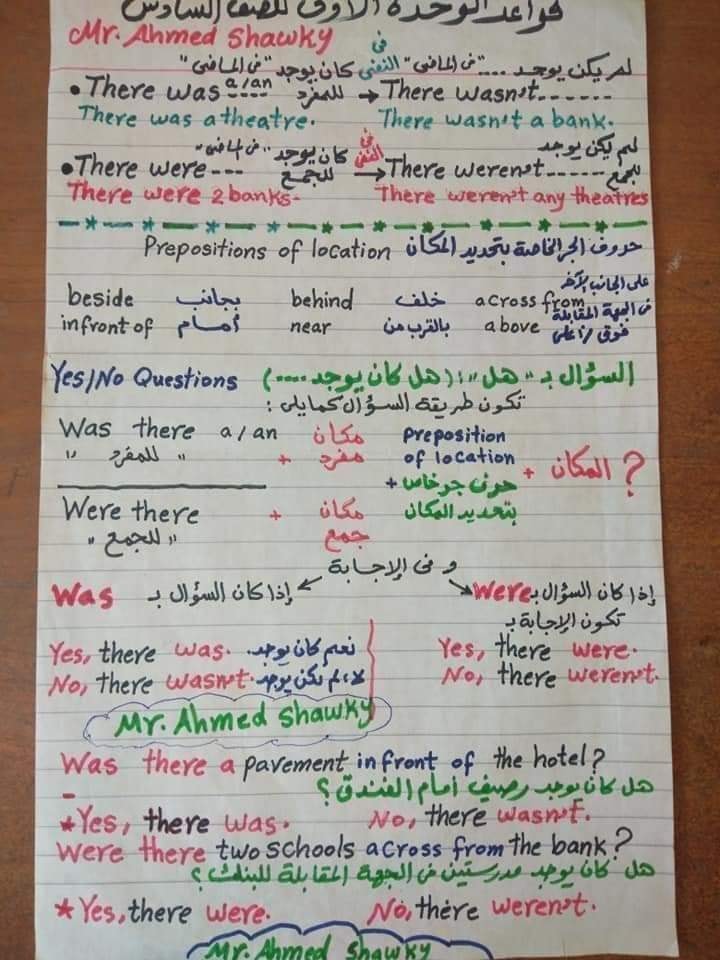 قواعد الوحدة الأولى للصف السادس
Mr. Ahmed Shawky
لم يكن يوجد .... "فى الماضى" فى النفى كان يوجد "فى الماضى"
• There was a/an ---- للمفرد → There wasn't ------
There was a theatre. There wasn't a bank.
لم يكن يوجد فى النفى كان يوجد "فى الماضى"
• There were --- للجمع → There weren't ----- للجمع
There were 2 banks. There weren't any theatres
Prepositions of location حروف الجر الخاصة بتحديد المكان
على الجانب الآخر
beside بجانب behind خلف across from فى الجهة المقابلة
infront of أمام near بالقرب من above فوق / أعلى
Yes/No Questions السؤال بـ "هل": (هل كان يوجد ....)
تكون طريقة السؤال كمايلى :
Was there a/an مكان preposition
"للمفرد" + مفرد of location + المكان ?
حرف جر خاص +
Were there + مكان بتحديد المكان
"للجمع" جمع
و فى الإجابة
Was إذا كان السؤال بـ Were إذا كان السؤال بـ
تكون الإجابة بـ
Yes, there was. نعم كان يوجد. Yes, there were.
No, there wasn't. لا، لم يكن يوجد No, there weren't.
Mr. Ahmed Shawky
Was there a pavement infront of the hotel?
هل كان يوجد رصيف أمام الفندق؟
* Yes, there was. No, there wasn't.
Were there two schools across from the bank?
هل كان يوجد مدرستين فى الجهة المقابلة للبنك؟
* Yes, there were. No, there weren't.
Mr. Ahmed Shawky